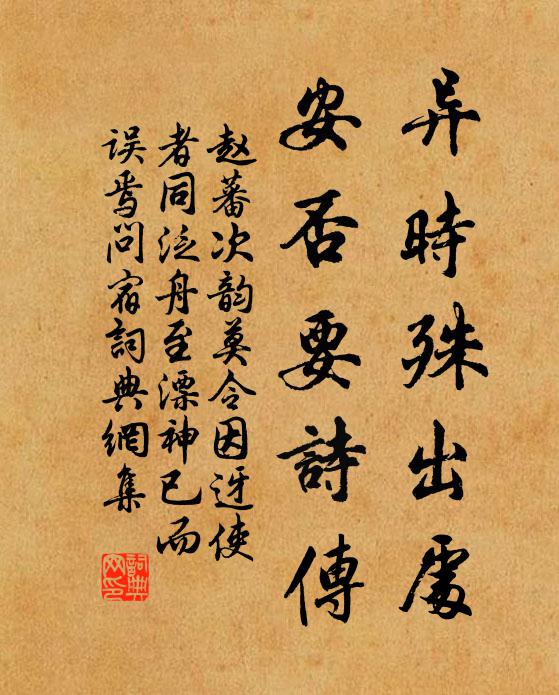 异時殊出處
安否要詩傳
赵蕃次韵莫令因迓使
者同泛舟至溧神已而
误焉问宿詞典網集
詞典网印